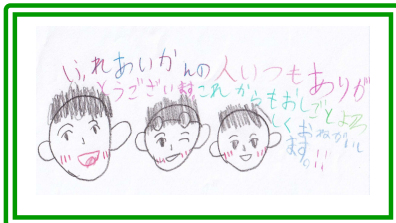 ふれあいかんの人いつもありが
とうございますこれからもおしごとよろ
しくおねがいし
ます。!!